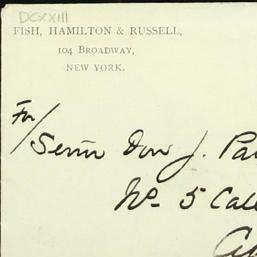 DCXXIII
FISH, HAMILTON & RUSSELL,
104 BROADWAY,
NEW YORK.
For/
Señor Don J. Pa
No 5 Call